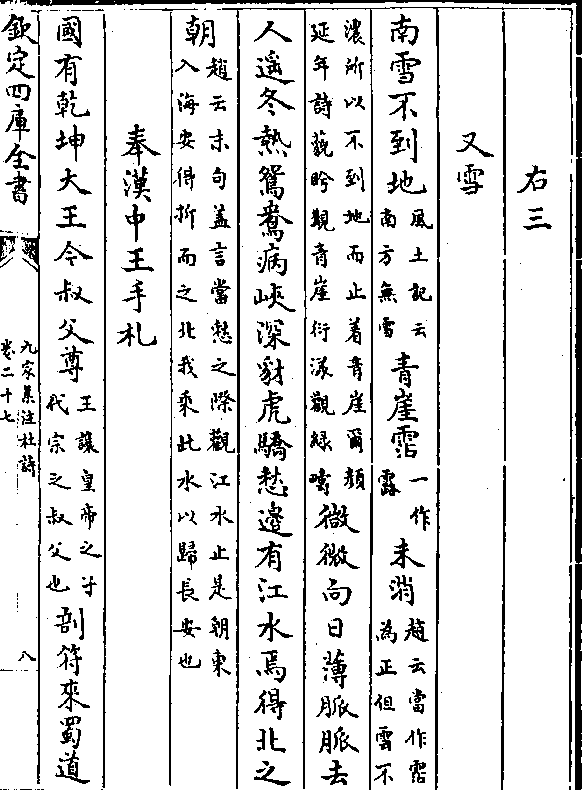 右三
又雪
南雪不到地風土記云南方無雪青崖霑一作露未消趙云當作霑為正但雪不
濃所以不到地而止着青崖爾顔延年詩藐盻觀青崖衍漾觀緑疇微微向日薄脈脈去
人遥冬熱鴛鴦病峽深豺虎驕愁邊有江水焉得北之
朝趙云末句盖言當愁之際觀江水止是朝東入海安得折而之北我乘此水以歸長安也
奉漢中王手札
國有乾坤大王今叔父尊王讓皇帝之子代宗之叔父也剖符來蜀道
欽定四庫全書
九家集注杜詩
卷二十七
八